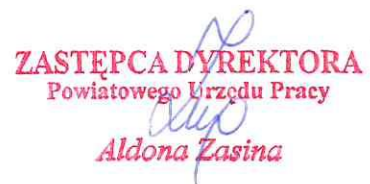 ZASTĘPCA DYREKTORA
Powiatowego Urzędu Pracy
Aldona Zasina